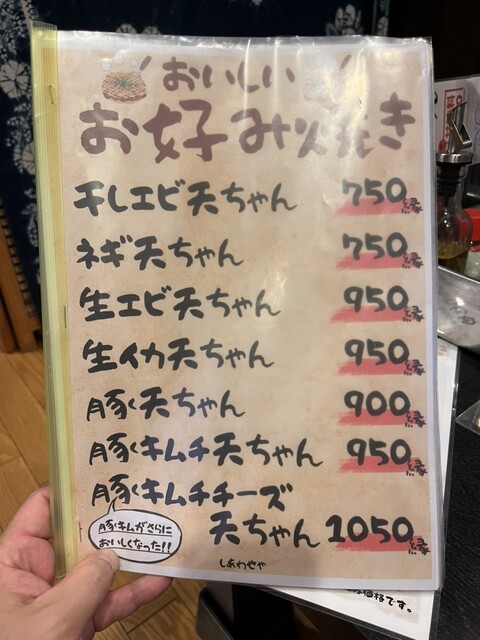 おいしい
お好み火焼き
干しエビ天ちゃん 750縁
ネギ天ちゃん 750縁
生エビ天ちゃん 950縁
生イカ天ちゃん 950縁
豚く天ちゃん 900縁
豚くキムチ天ちゃん 950縁
豚くキムチチーズ
天ちゃん 1050縁
豚キムがさらに
おいしくなった!!
しあわせや
価格です。